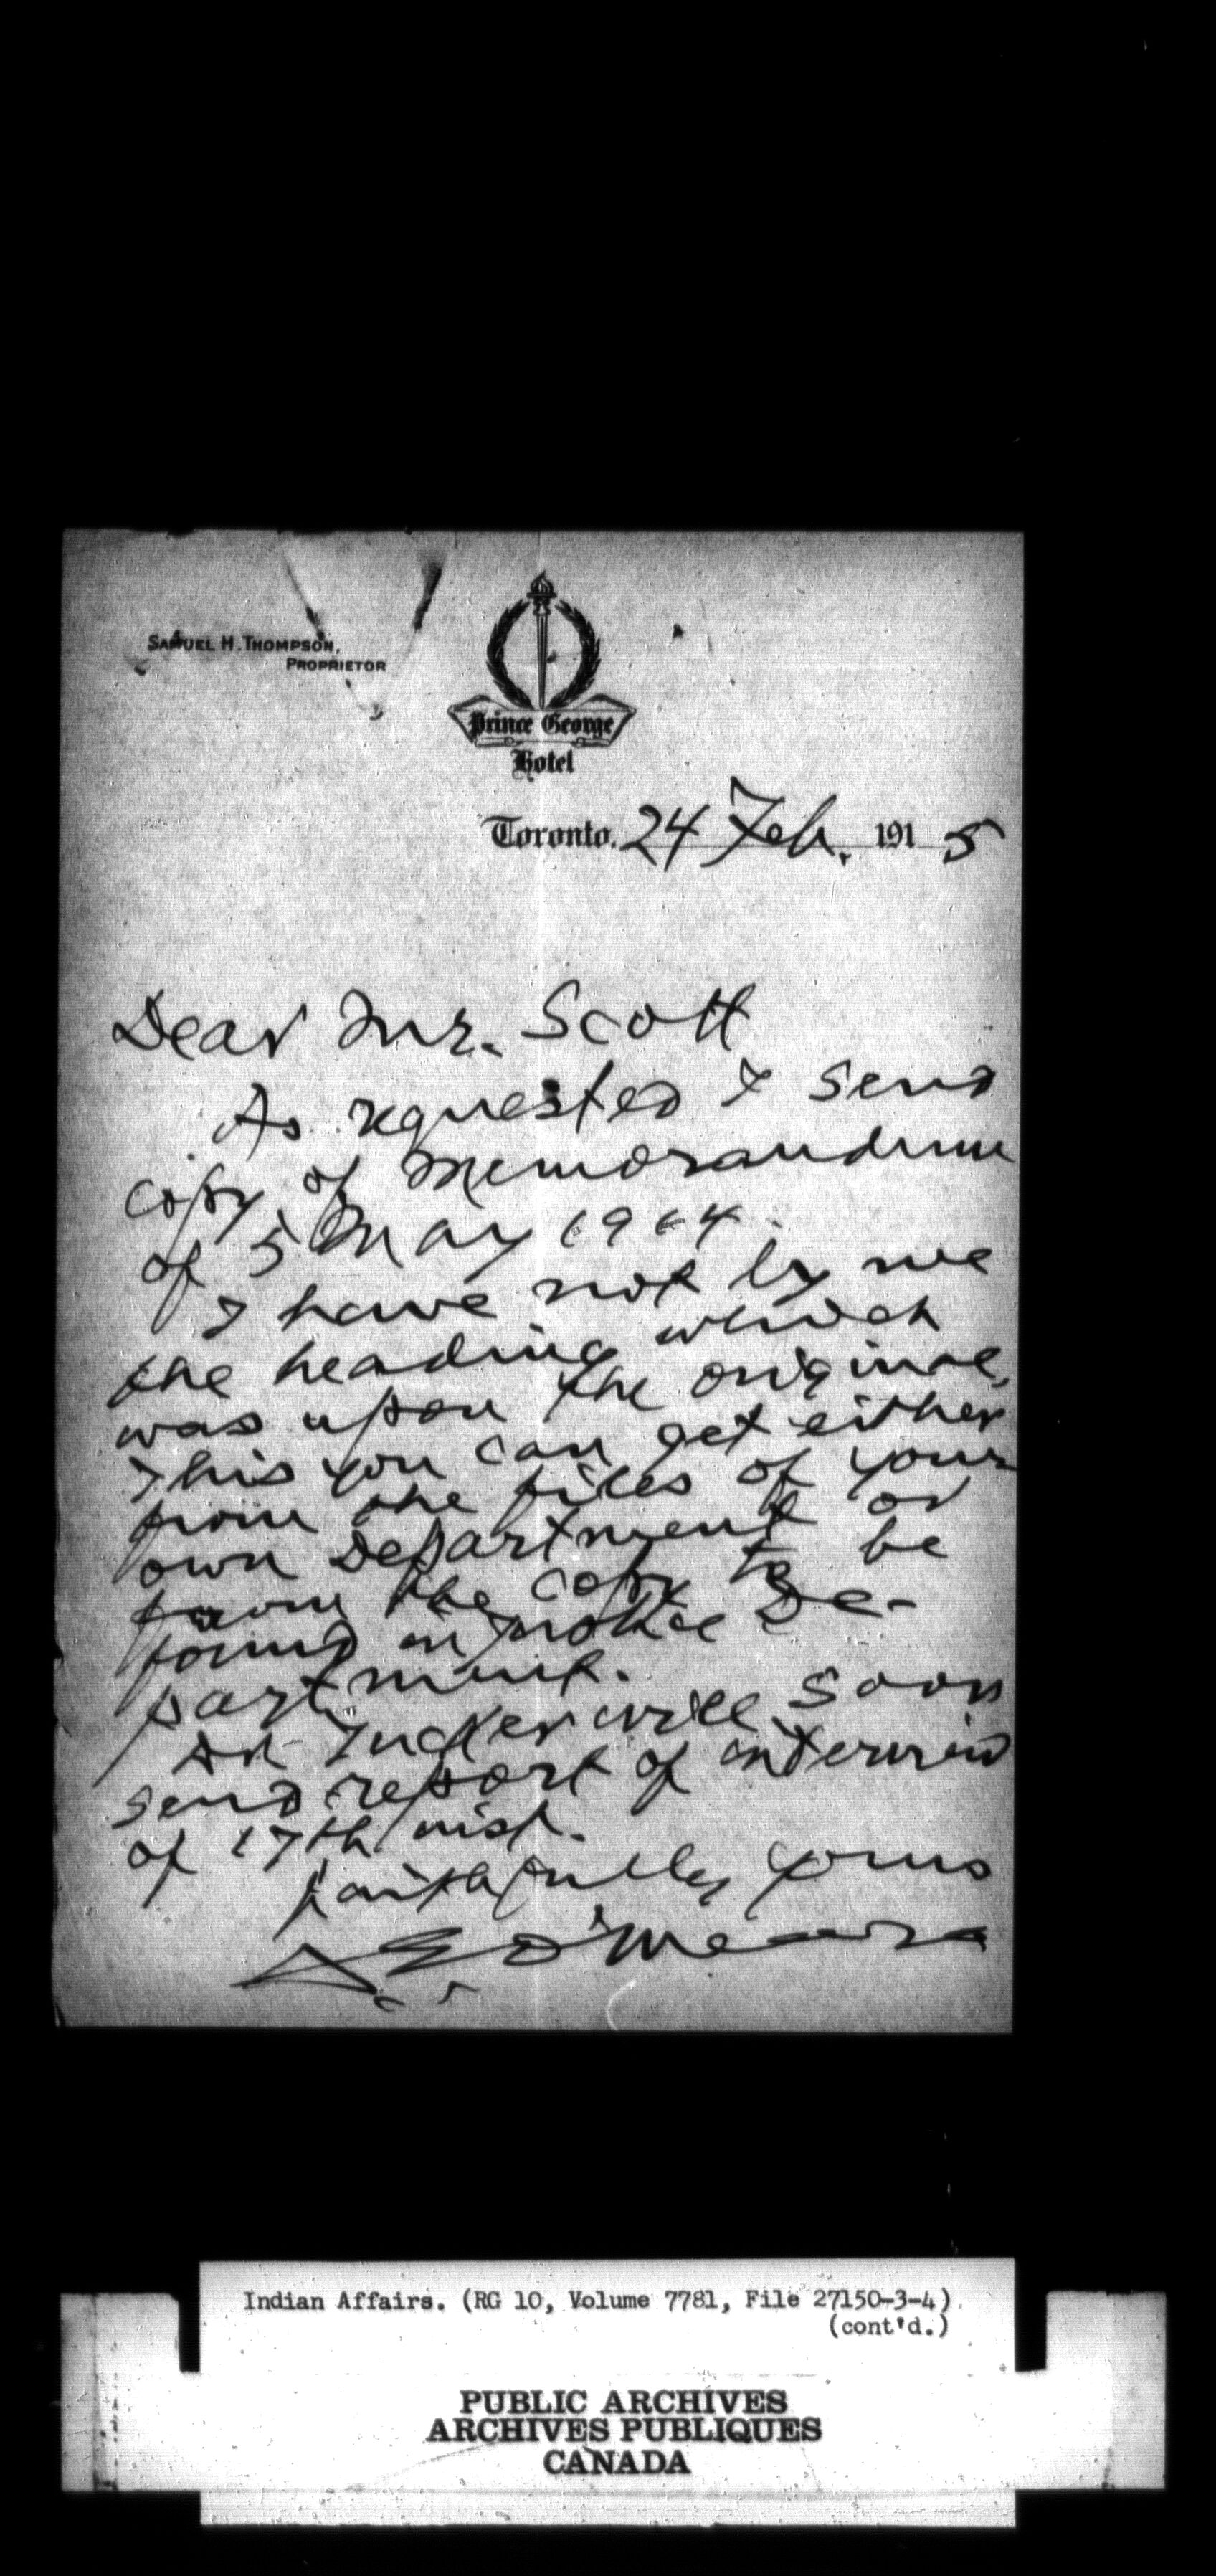 SAMUEL H. THOMPSON,
PROPRIETOR
Prince George
Hotel
Toronto, 24 Feb. 1915
Dear Mr. Scott
As requested I send
copy of Memorandum
of 5 May 1914.
I have not by me
the heading which
was upon the original,
This you can get either
from the files of your
own Department or
from the copy to be
found in Justice De-
partment.
Dr Tucker will soon
send report of interview
of 17th inst.
faithfully yours
A E O'Meara
Indian Affairs. (RG 10, Volume 7781, File 27150-3-4)
(cont'd.)
PUBLIC ARCHIVES
ARCHIVES PUBLIQUES
CANADA